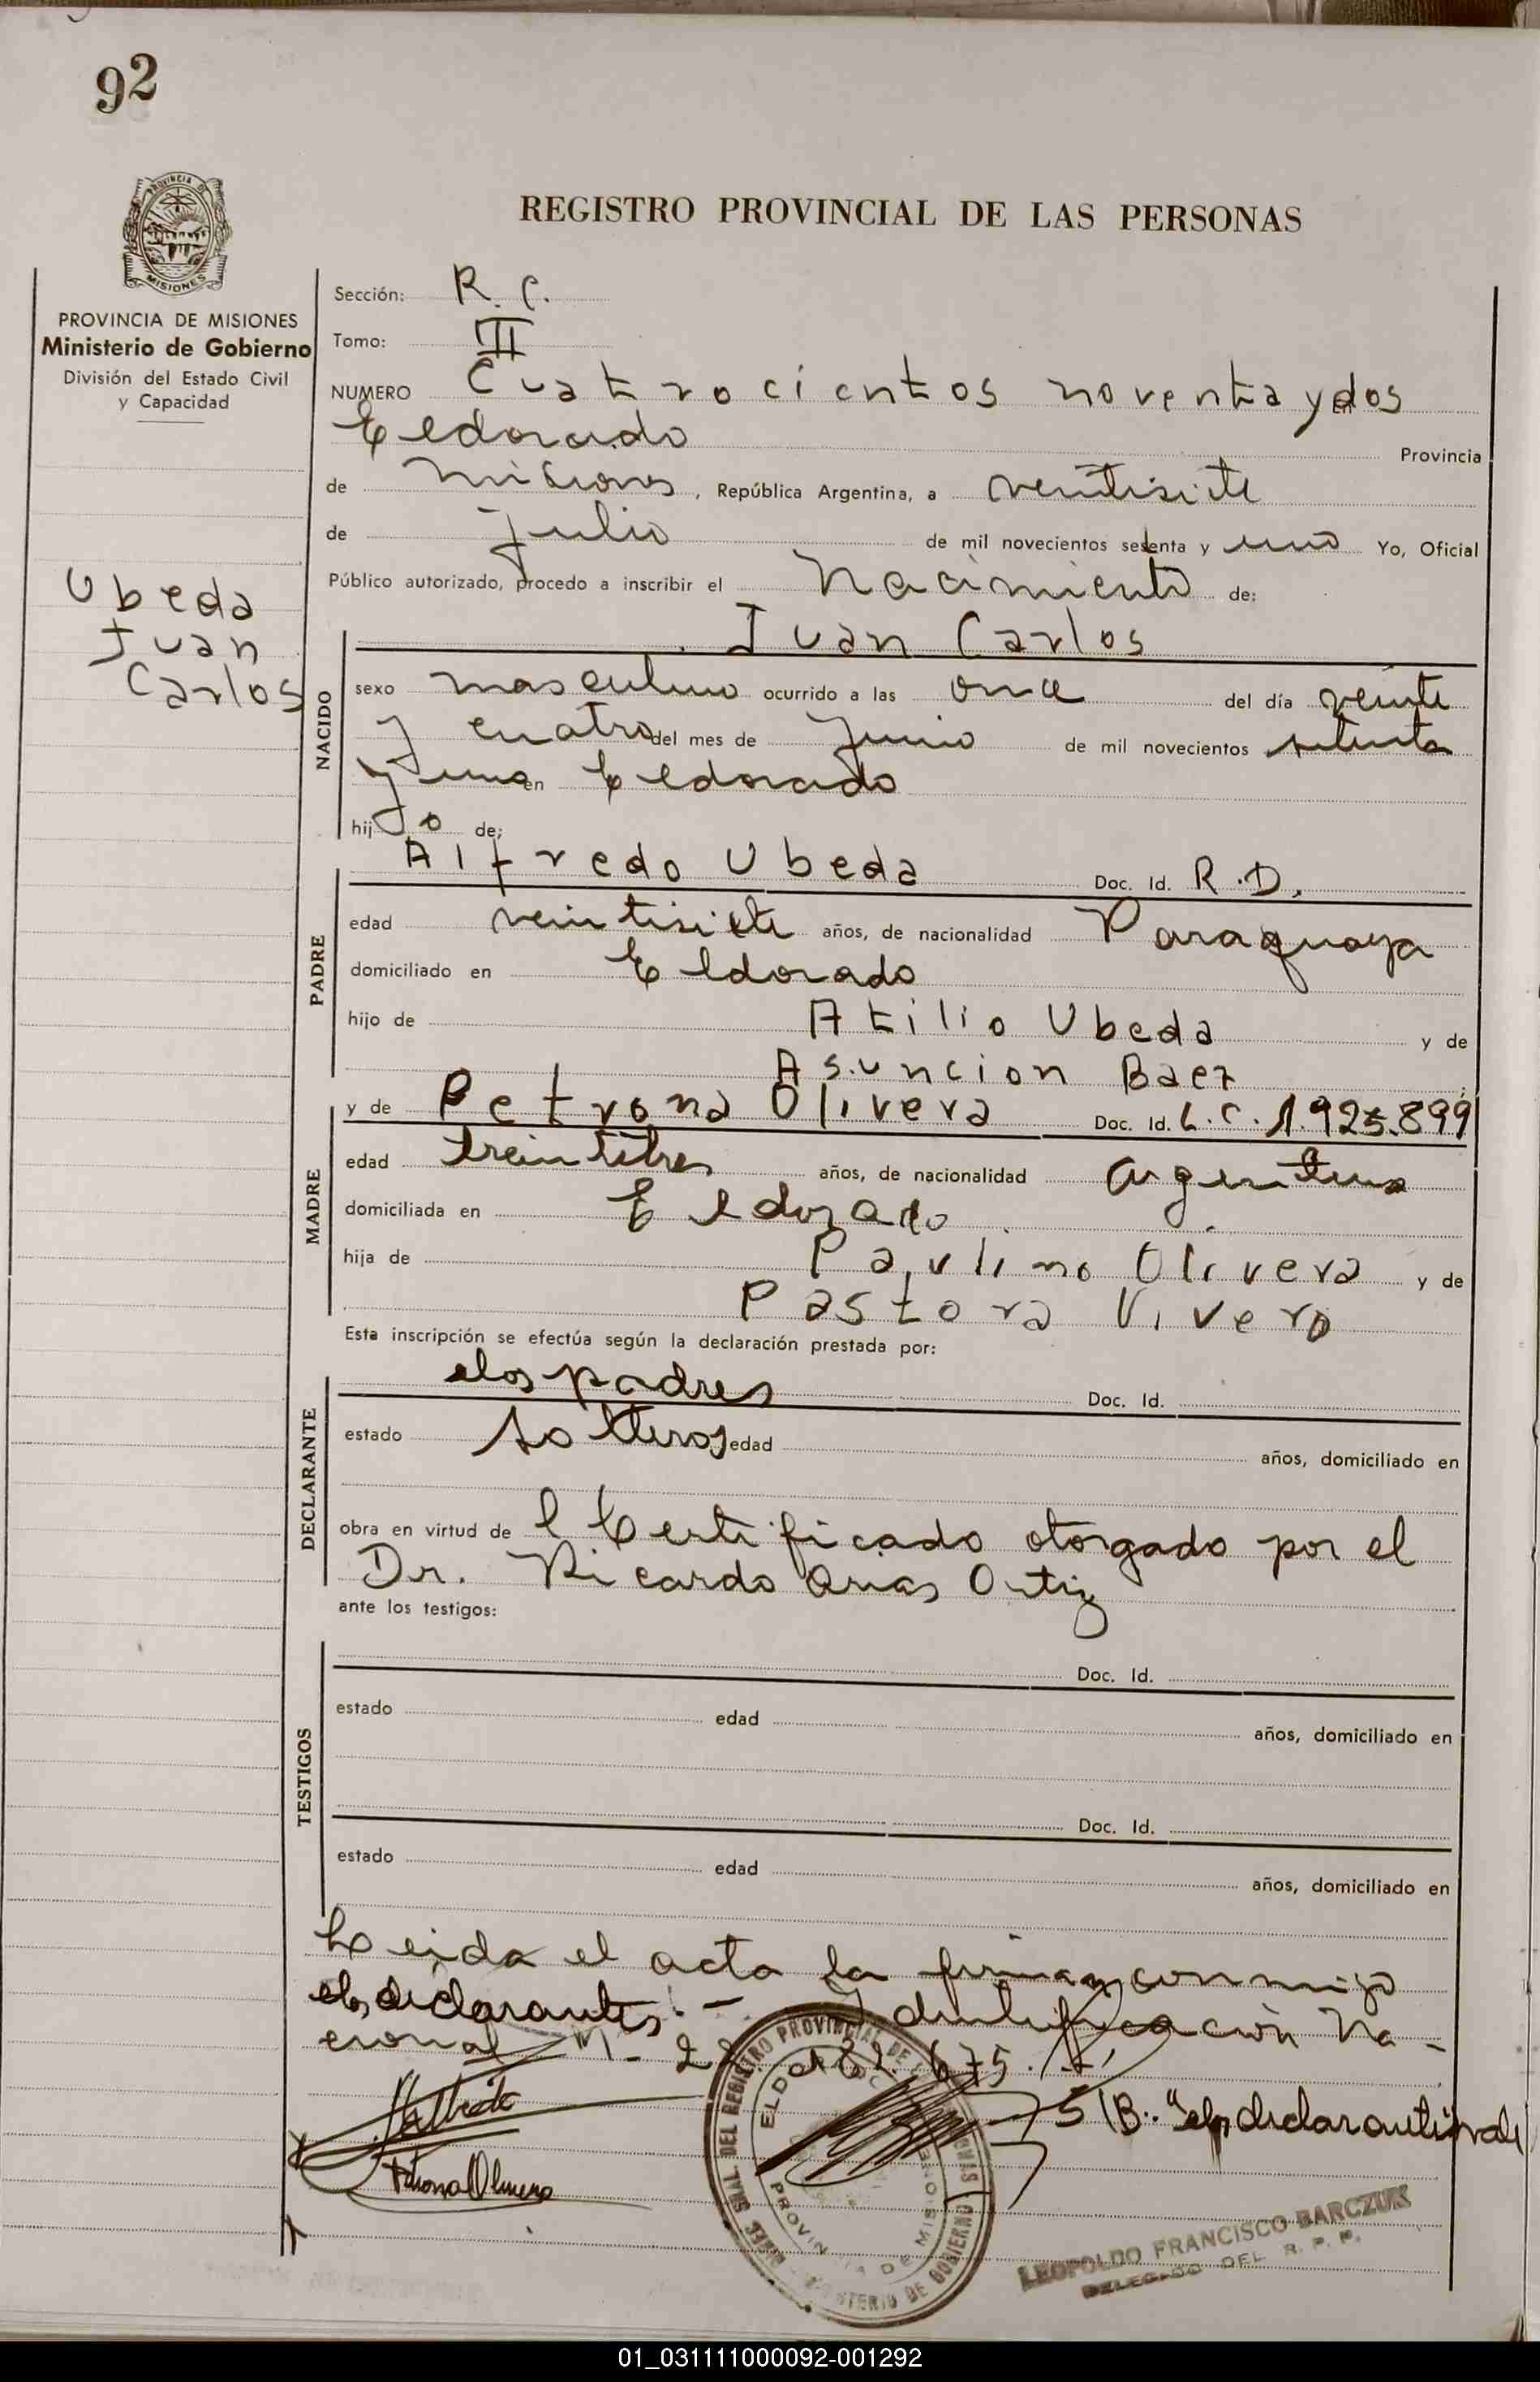 92
PROVINCIA DE
MISIONES
PROVINCIA DE MISIONES
Ministerio de Gobierno
División del Estado Civil
y Capacidad
Ubeda
Juan
Carlos
REGISTRO PROVINCIAL DE LAS PERSONAS
Sección: R. C.
Tomo: III
NUMERO Cuatrocientos noventa y dos
En
Eldorado Provincia
de Misiones, República Argentina, a ventisiete
de Julio de mil novecientos setenta y uno Yo, Oficial
Público autorizado, procedo a inscribir el Nacimiento de:
Juan Carlos
NACIDO
sexo masculino ocurrido a las once del día veinte
y cuatro del mes de Junio de mil novecientos setenta
y uno en Eldorado
hijo de:
PADRE
Alfredo Ubeda Doc. Id. R.D.
edad veintisiete años, de nacionalidad Paraguaya
domiciliado en Eldorado
hijo de Atilio Ubeda y de
Asuncion Baez
MADRE
y de Petrona Olivera Doc. Id. L.C. 1.925.899
edad treintitres años, de nacionalidad Argentina
domiciliada en Eldorado
hija de Paulino Olivera y de
Pastora Vivero
Esta inscripción se efectúa según la declaración prestada por:
DECLARANTE
los padres Doc. Id.
estado solteros edad años, domiciliado en
obra en virtud de l Certificado otorgado por el
Dr. Ricardo Arias Ortiz
ante los testigos:
TESTIGOS
Doc. Id.
estado edad años, domiciliado en
Doc. Id.
estado edad años, domiciliado en
Leida el acta la firman conmigo
los declarantes.- Identificación Na-
cional M- 22. 675.
S/B: "los declarantes" vale
Petrona Olivera
ELDORADO
PROVINCIA DE MISIONES
LEOPOLDO FRANCISCO BARCZUK
DELEGADO DEL R. P. P.
01_031111000092-001292